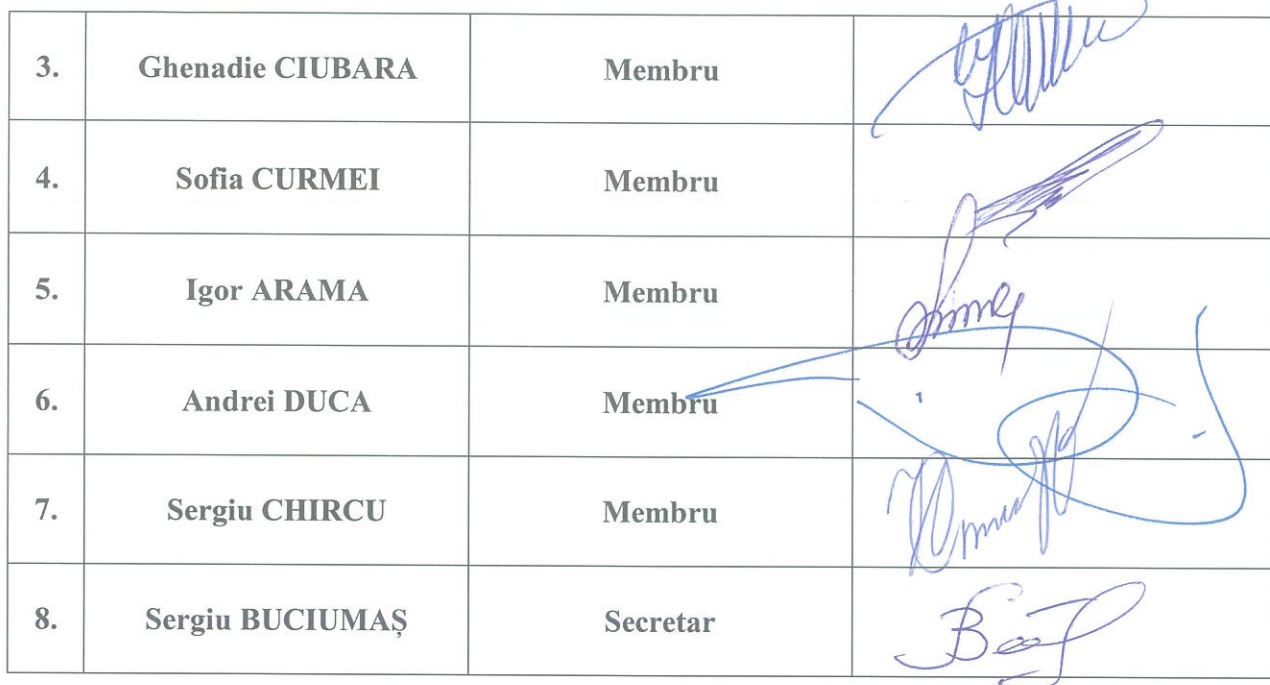 3. Ghenadie CIUBARA Membru
4. Sofia CURMEI Membru
5. Igor ARAMA Membru
6. Andrei DUCA Membru
7. Sergiu CHIRCU Membru
8. Sergiu BUCIUMAȘ Secretar